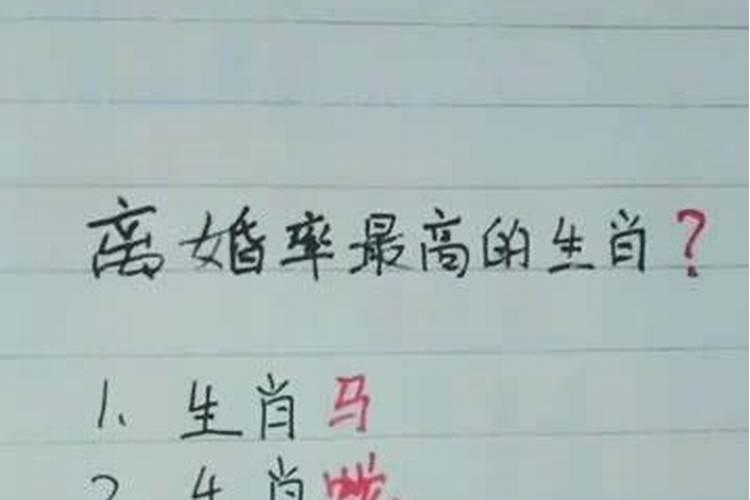 离婚率最高的生肖?
1、生肖马
2、生肖